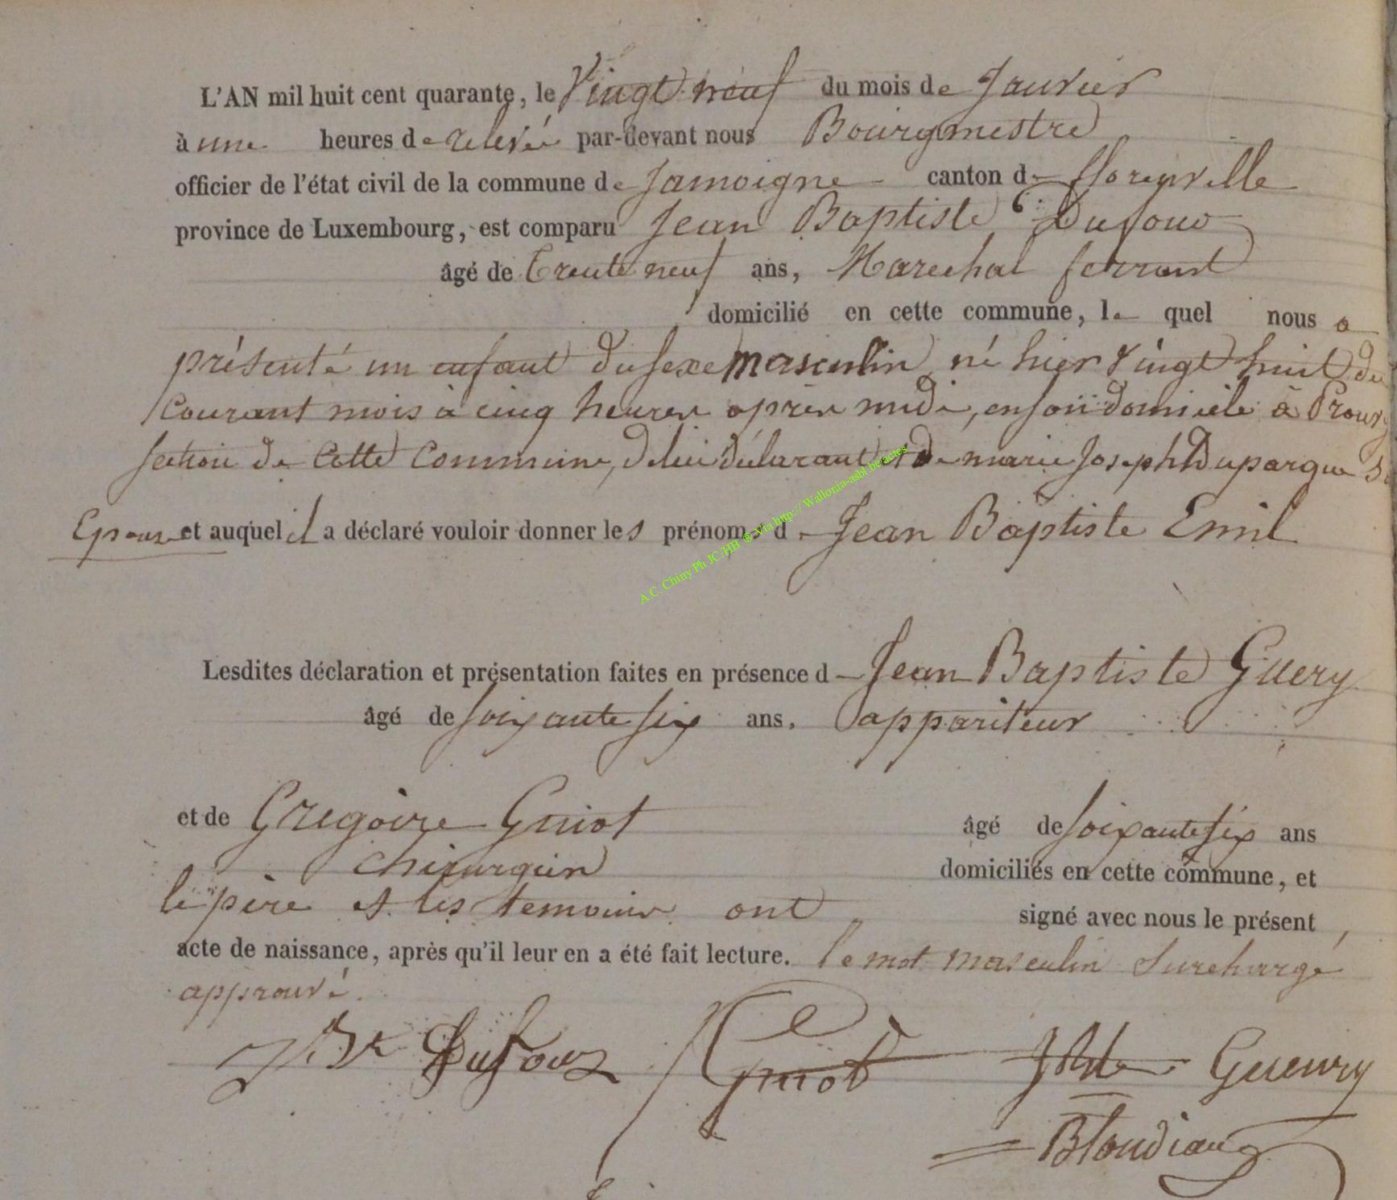 L'AN mil huit cent quarante, le Vingt neuf du mois de Janvier
à une heures de relevée par-devant nous Bourgmestre
officier de l'état civil de la commune de Jamoigne canton de florenville
province de Luxembourg, est comparu Jean Baptiste Dufour
âgé de trente neuf ans, Marechal ferrant
domicilié en cette commune, le quel nous a
présenté un enfant du sexe masculin né hier vingt huit du
courant mois à cinq heures après midi, en son domicile à Prouvy
section de cette Commune, de lui déclarant et de marie Joseph Duparque sa
Epouse et auquel il a déclaré vouloir donner les prénoms d Jean Baptiste Emil
Lesdites déclaration et présentation faites en présence d Jean Baptiste Guery
âgé de soixante six ans. appariteur
et de Gregoire Guiot âgé de soixante six ans
chirurgien domiciliés en cette commune, et
le père et les temoins ont signé avec nous le présent
acte de naissance, après qu'il leur en a été fait lecture. le mot masculin surchargé
approuvé.
JBte Dufour Guiot JBte Gueury
Blondiaux